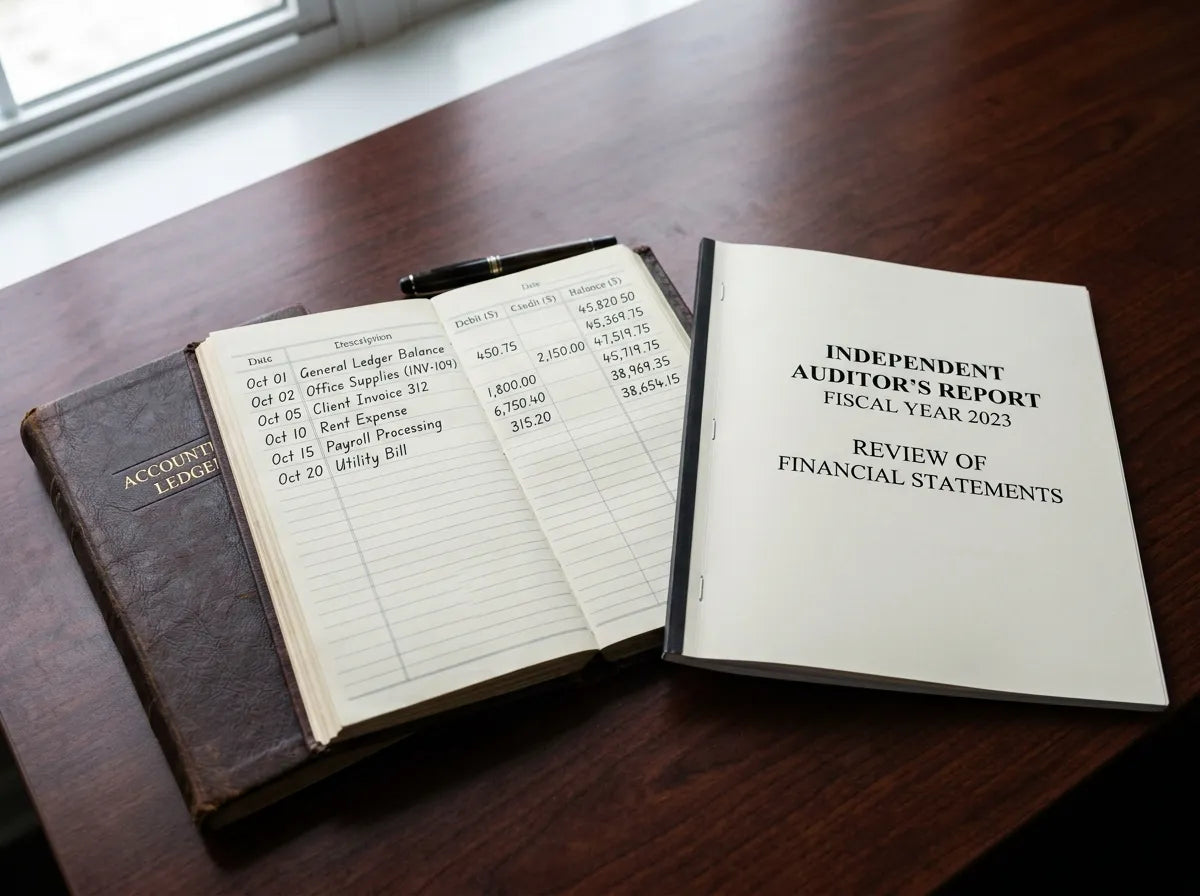 ACCOUNTI
LEDGE
Date Description
Oct 01 General Ledger Balance
Oct 02 Office Supplies (INV-109)
Oct 05 Client Invoice 312
Oct 10 Rent Expense
Oct 15 Payroll Processing
Oct 20 Utility Bill
Date
Debit ($) Credit ($) Balance ($)
45,820 50
450.75 45,369.75
2,150.00 47,519.75
1,800.00 45,719.75
6,750.40 38,969.35
315.20 38,654.15
INDEPENDENT
AUDITOR'S REPORT
FISCAL YEAR 2023
REVIEW OF
FINANCIAL STATEMENTS